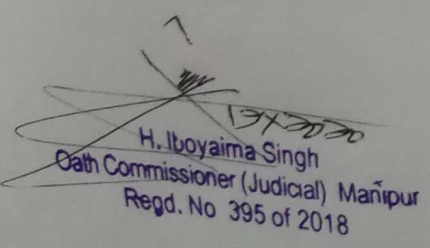 H. Iboyaima Singh
Oath Commissioner (Judicial) Manipur
Regd. No 395 of 2018